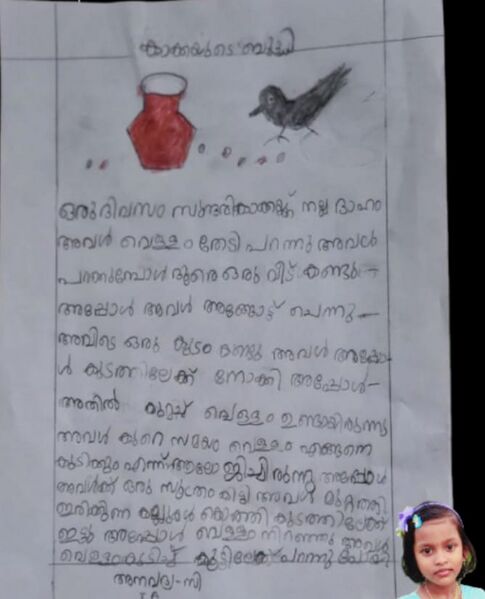 കാക്കയുടെ ബുദ്ധി
ഒരു ദിവസം സുന്ദരികാക്കക്ക് നല്ല ദാഹം
അവൾ വെള്ളം തേടി പറന്നു അവൾ
പറന്നുമ്പോൾ ദൂരെ ഒരു വീട് കണ്ടു
അപ്പോൾ അവൾ അങ്ങോട്ട് ചെന്നു
അവിടെ ഒരു കുടം കണ്ടു അവൾ അപ്പോ
ൾ കുടത്തിലേക്ക് നോക്കി അപ്പോൾ
അതിൽ കുറച്ച് വെള്ളം ഉണ്ടായിരുന്നു
അവൾ കുറെ സമയം വെള്ളം എങ്ങനെ
കുടിക്കും എന്ന് ആലോജിച്ചിരുന്നു അപ്പോൾ
അവൾക്ക് ഒരു സൂത്രം കിട്ടി അവൾ മുറ്റത്ത്
ഇരിക്കുന്ന കല്ലുകൾ കൊത്തി കുടത്തിലേക്ക്
ഇട്ടു അപ്പോൾ വെള്ളം നിറഞ്ഞു അവൾ
വെള്ളം കുടിച്ച് കൂട്ടിലേക്ക് പറന്നു പോയി
അനവദ്യ-സി